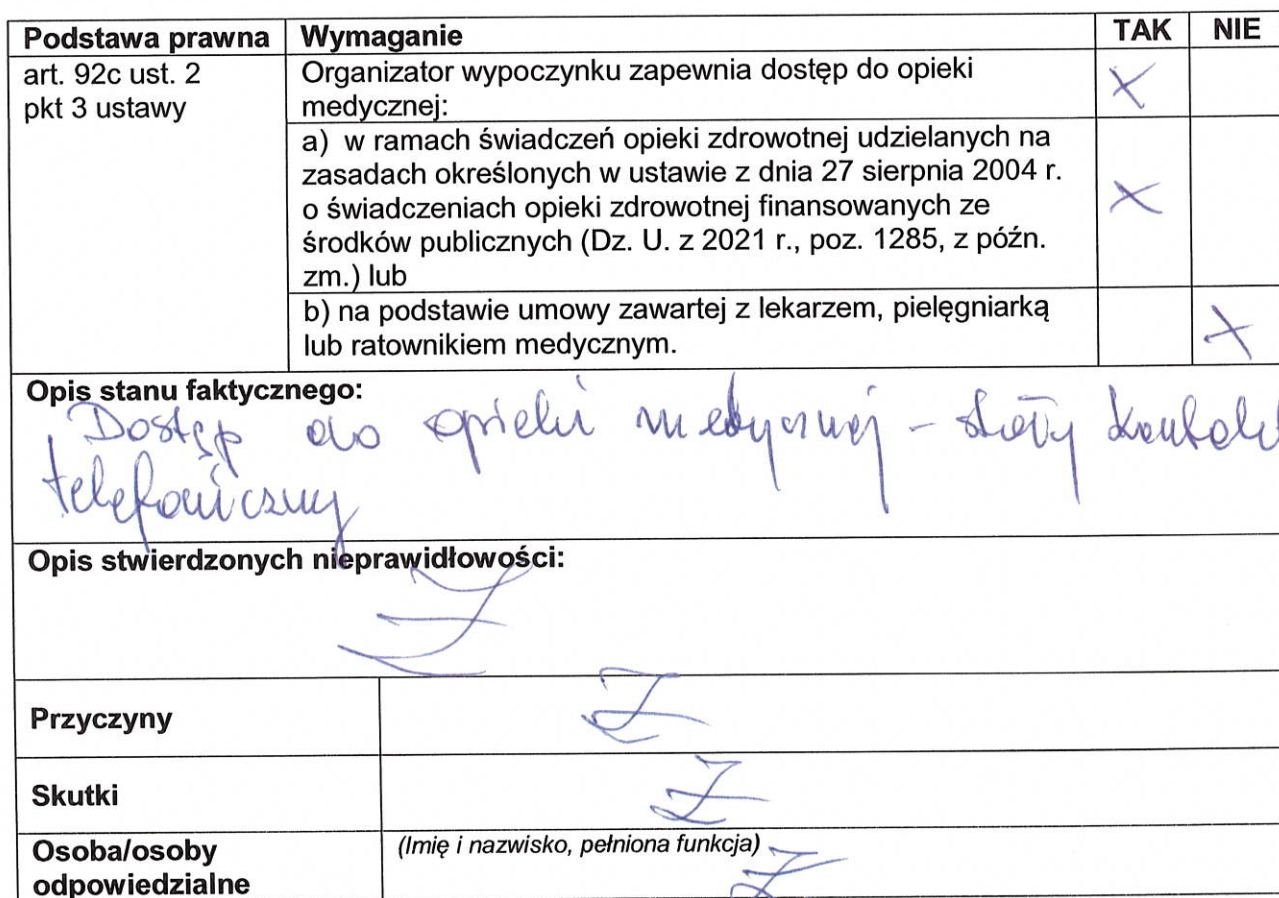 Podstawa prawna Wymaganie TAK NIE
art. 92c ust. 2 Organizator wypoczynku zapewnia dostęp do opieki
pkt 3 ustawy medycznej: X
a) w ramach świadczeń opieki zdrowotnej udzielanych na
zasadach określonych w ustawie z dnia 27 sierpnia 2004 r.
o świadczeniach opieki zdrowotnej finansowanych ze X
środków publicznych (Dz. U. z 2021 r., poz. 1285, z późn.
zm.) lub
b) na podstawie umowy zawartej z lekarzem, pielęgniarką
lub ratownikiem medycznym. X
Opis stanu faktycznego:
Dostęp do opieki medycznej - stały kontakt
telefoniczny
Opis stwierdzonych nieprawidłowości:
Z
Przyczyny Z
Skutki Z
Osoba/osoby (Imię i nazwisko, pełniona funkcja) Z
odpowiedzialne